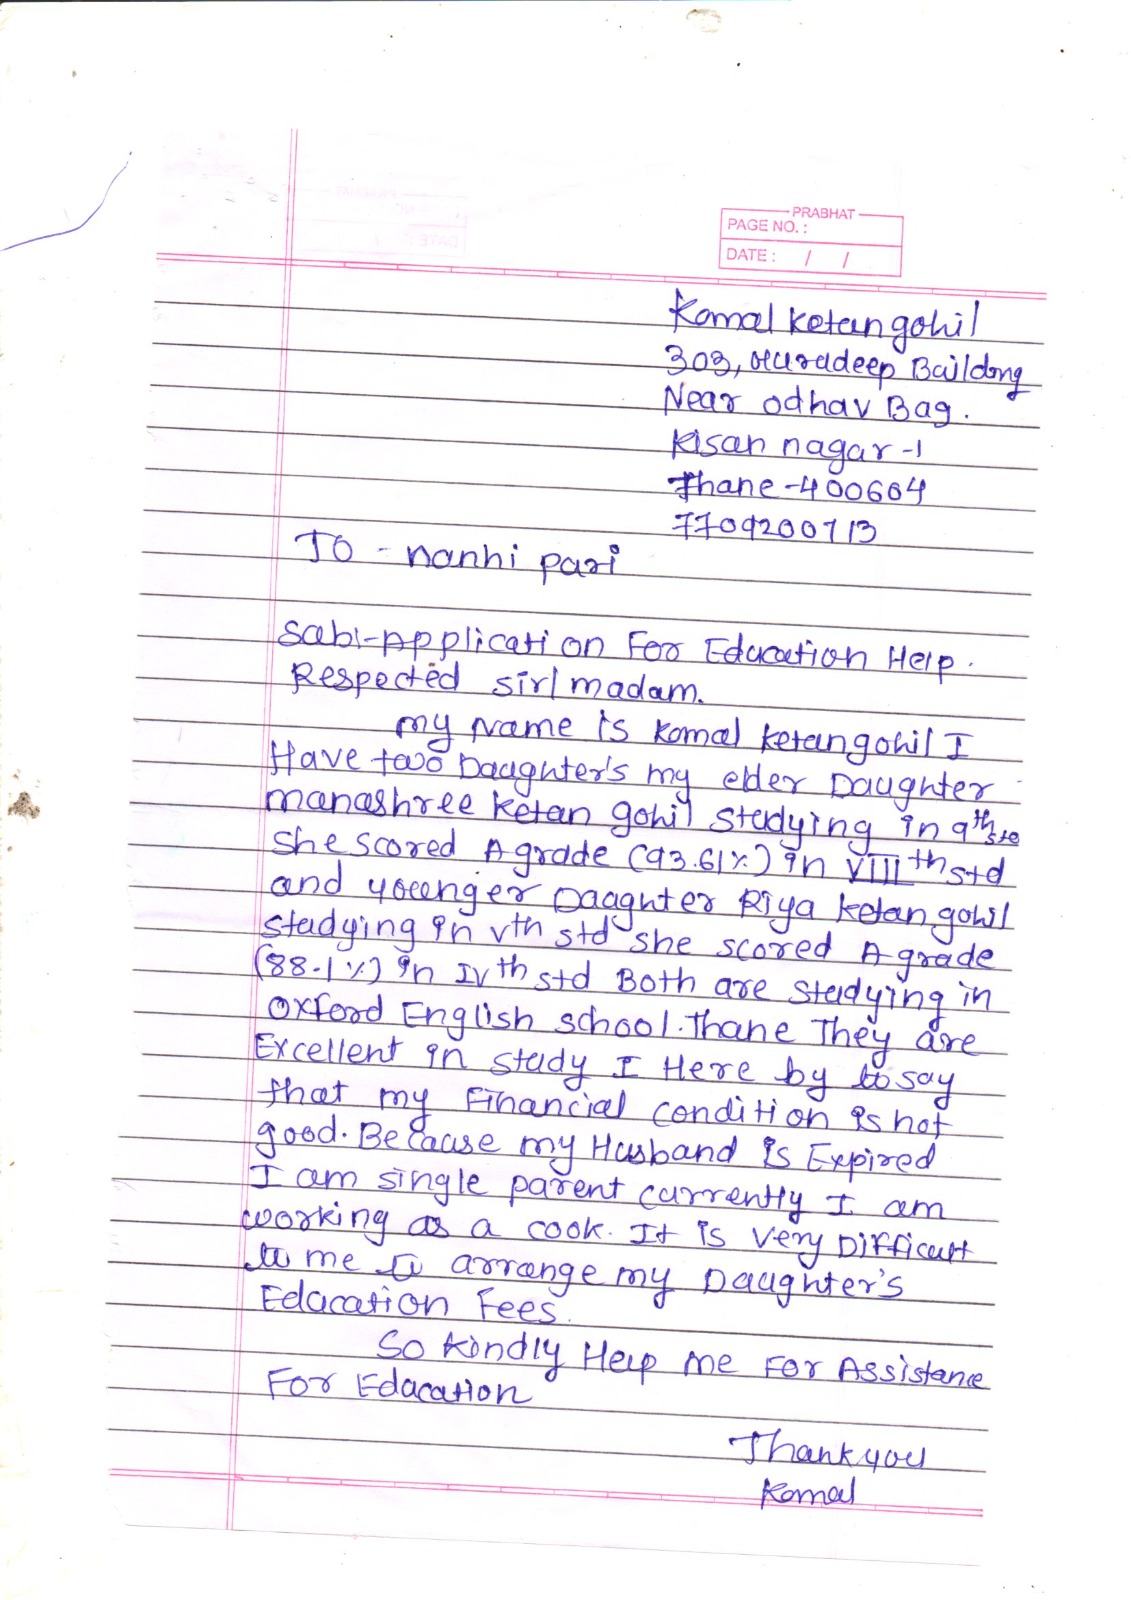 PRABHAT
PAGE NO. :
DATE : / /
Komal Ketan gohil
303, Building
Near odhav Bag.
Kisan nagar -1
Thane -400604
7709200713
TO - nanhi pari
Sub:-Application For Education Help.
Respected sir/madam.
my Name is Komal Ketan gohil I
Have two Daughter's my elder Daughter
manashree Ketan gohil studying in 9th std
she scored A grade (93.61%) in VIIIth std
and younger Daughter Riya Ketan gohil
studying in vth std she scored A grade
(88.1%) in IVth std Both are studying in
Oxford English school. Thane They are
Excellent in study I Here by to say
that my Financial condition is not
good. Because my Husband is Expired
I am single parent currently I am
working as a cook. It is very Difficult
to me to arrange my Daughter's
Education Fees.
So Kindly Help me For Assistance
For Education
Thank you
Komal